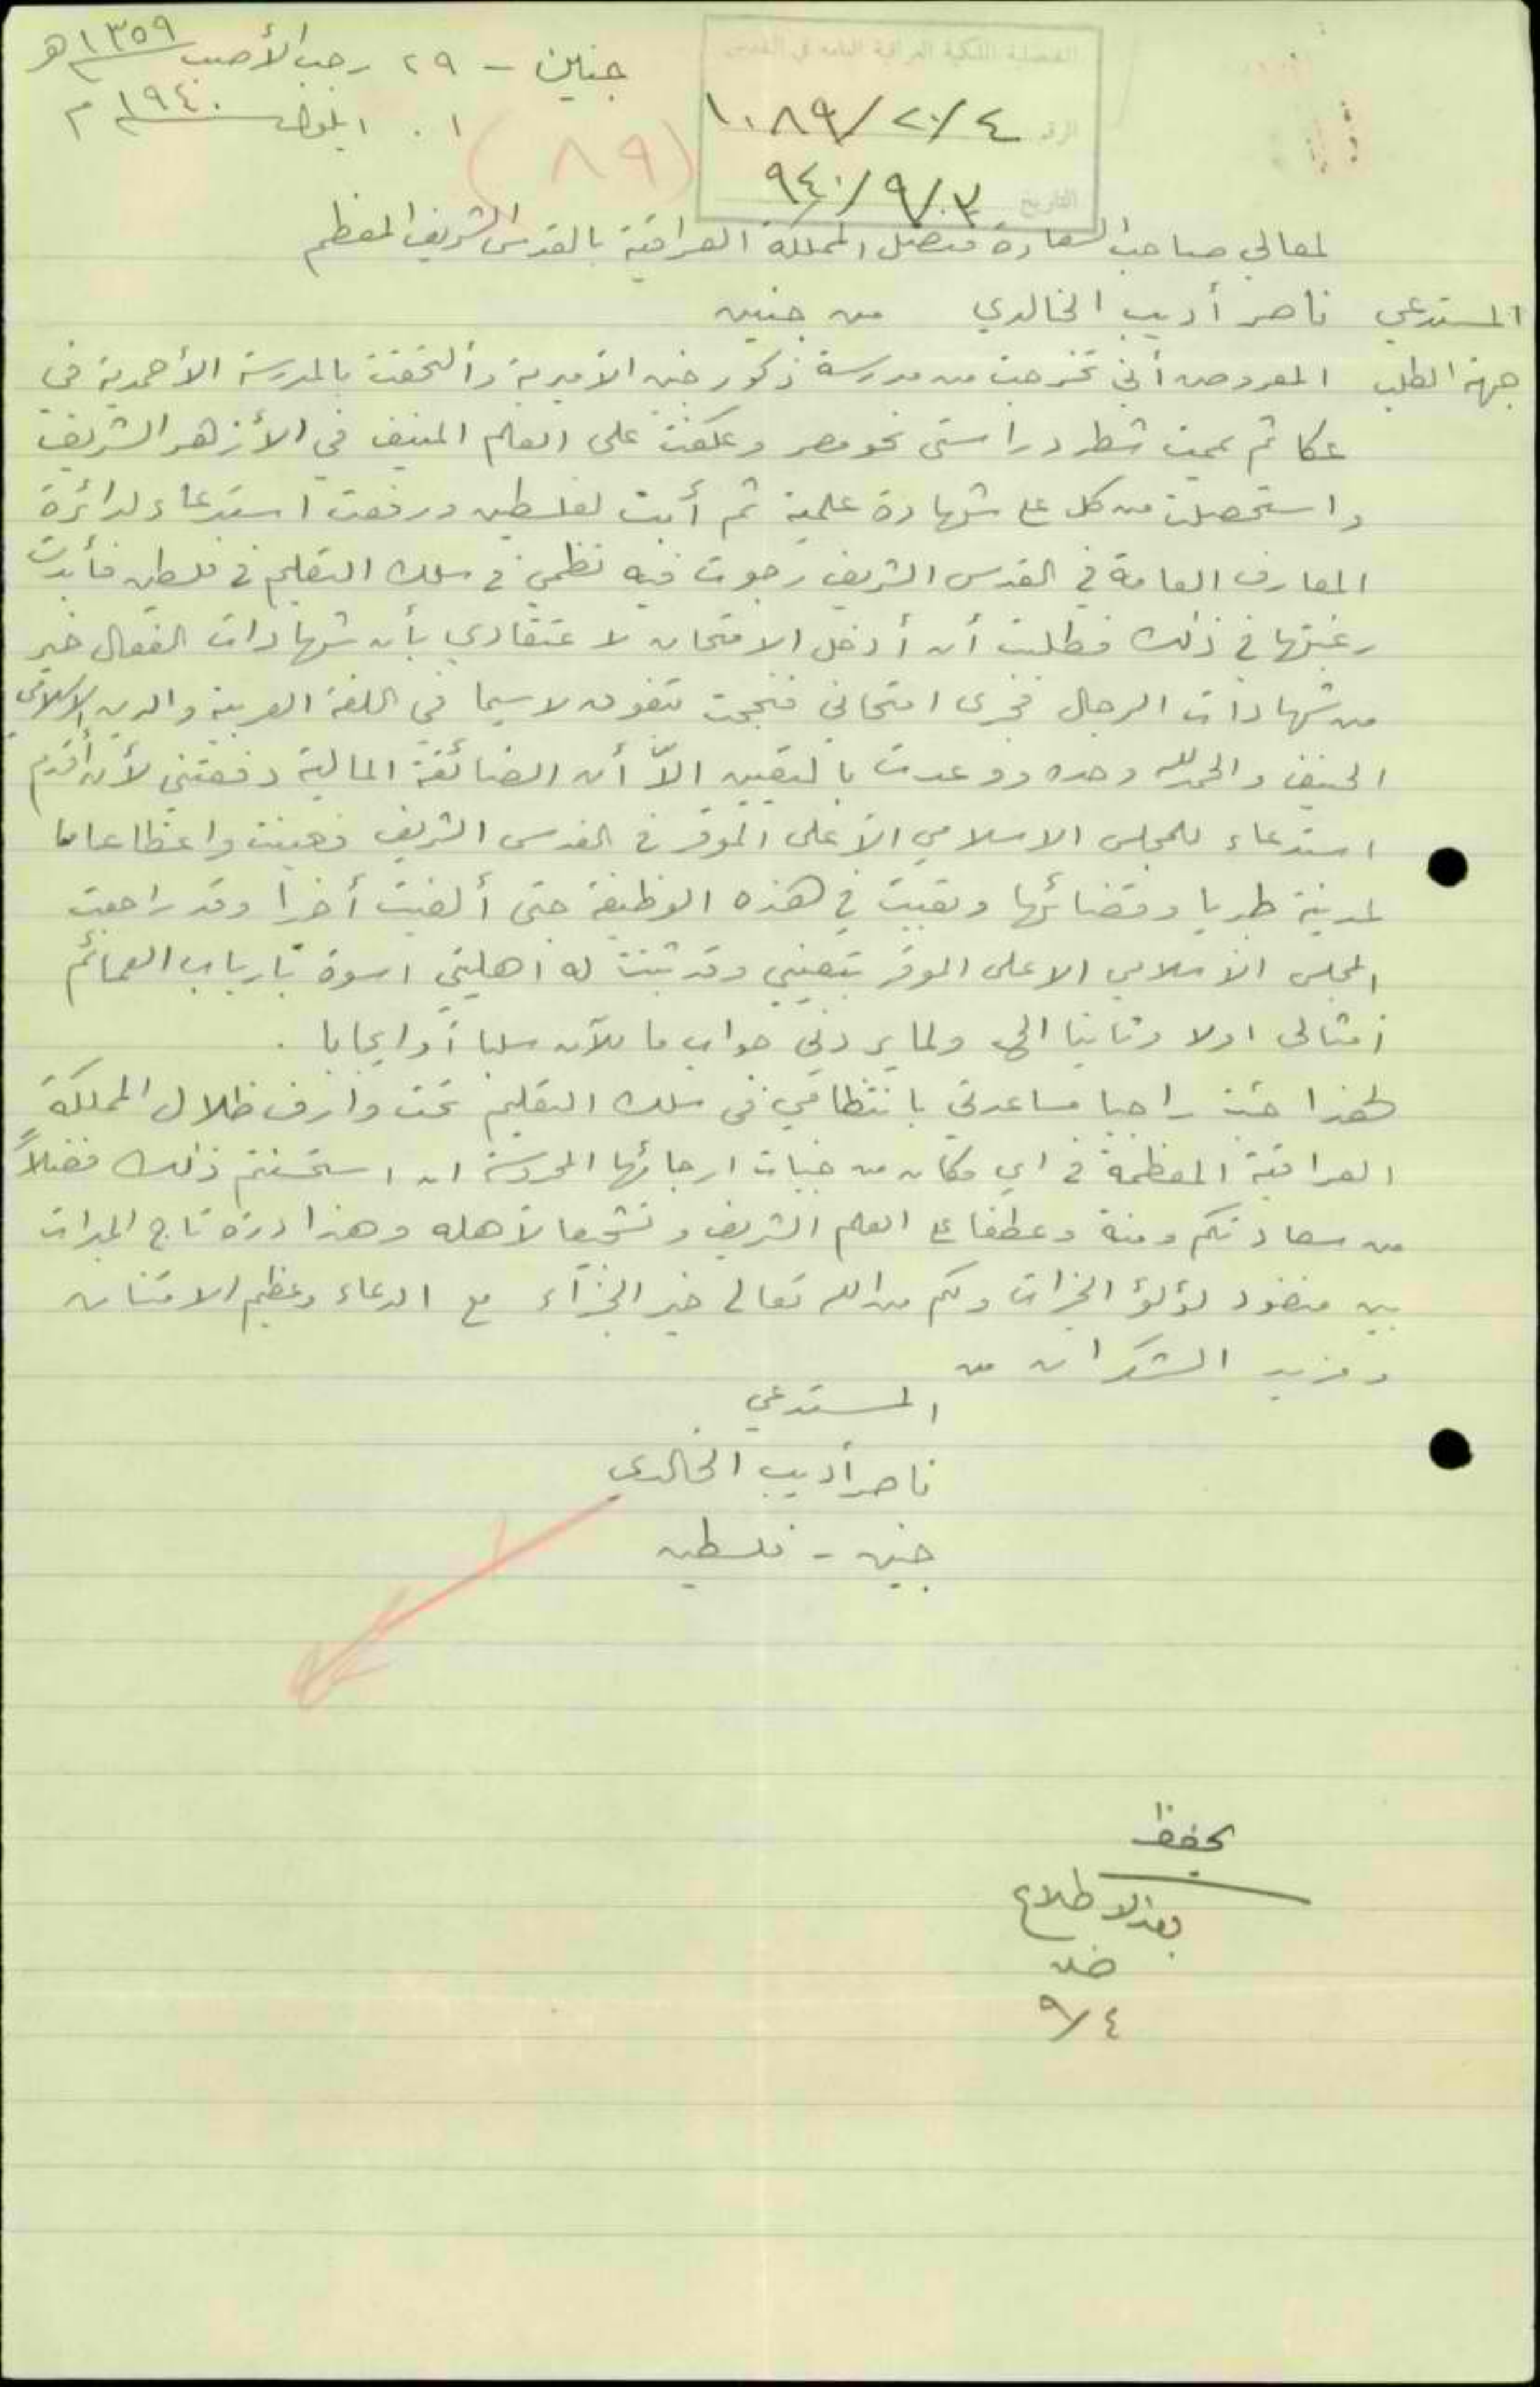 جنين - ٢٩ رجب الأصب ١٣٥٩ هـ
١ . ايلول ١٩٤٠ م
القنصلية الملكية العراقية العامة في القدس
الرقم ١٠٨٩/٢٠/٤
التاريخ ٩٤٠/٩/٣
(٨٩)
لمعالي صاحب السعادة قنصل المملكة العراقية بالقدس الشريف المعظم
المستدعي ناصر أديب الخالدي من جنين
جهة الطلب المعروض أني تخرجت من مدرسة ذكور جنين الاميرية وألتحقت بالمدرسة الأحمدية في
عكا ثم يممت شطر دراستي نحو مصر وعكفت على العلم المنيف في الأزهر الشريف
واستحصلت من كل على شهادة علمية ثم أبت لفلسطين ورفعت استدعاء لدائرة
المعارف العامة في القدس الشريف رجوت فيه نظمي في سلك التعليم في فلسطين فأبدت
رغبتها في ذلك فطلبت أن أدخل الامتحان لاعتقادي بأن شهادات الفعال خير
من شهادات الرجال فجرى امتحاني فنجحت بتفوق لاسيما في اللغة العربية والدين الاسلامي
الحنيف والحمد لله وحده ووعدت بالتعيين الاّ أن الضائقة المالية دفعتني لأن أقدم
استدعاء للمجلس الاسلامي الأعلى الموقر في القدس الشريف فعينت واعظا عاما
لمدينة طبريا وقضائها وبقيت في هذه الوظيفة حتى ألغيت أخيرا وقد راجعت
المجلس الاسلامي الاعلى الموقر بتعييني وقد ثبتت له اهليتي اسوة بأرباب العمائم
أمثالي اولا وثانيا الخ ولما يردني جواب ما للآن سلبا أو ايجابا .
لهذا جئت راجيا مساعدتي بانتظامي في سلك التعليم تحت وارف ظلال المملكة
العراقية المعظمة في اي مكان من جنبات ارجائها المحروسة ان استحسنتم ذلك فضلاً
من سعادتكم ومنة وعطفا على العلم الشريف وتشجيعا لأهله وهذا درة تاج المبرات
بين منضود لؤلؤ الخيرات ولكم من الله تعالى خير الجزآء مع الدعاء وعظيم الامتنان
ومزيد الشكران من
المستدعي
ناصر أديب الخالدي
جنين - فلسطين
يحفظ
بعد الاطلاع
٩/٤